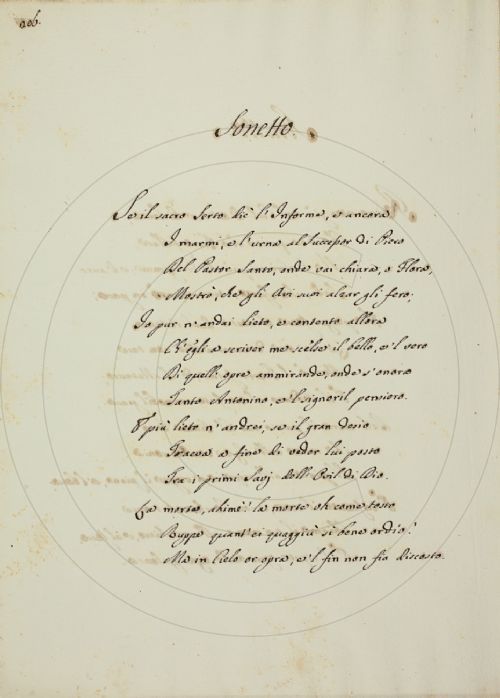 Sonetto.
Se il sacro Serto diè l'Informe, e ancora
I marmi, e l'urna al Successor di Piero
Del Pastor Santo, onde vai chiara, o Flora,
Mostrò, che gli Avi suoi alzar gli fero;
Io pur n'andai lieto, e contento allora
Ch'egli a scriver me scelse il bello, e 'l vero
Di quell'opre ammirande, onde s'onora
Santo Antonino, e 'l signoril pensiero.
E più lieto n'andrei, se il gran desio
Traeva a fine di veder lui posto
Tra i primi Savj dell'Ovil di Dio.
La morte, ahimè! la morte oh come tosto
Ruppe quant'ei quaggiù sì bene ordio!
Ma in Cielo or opra, e 'l fin non fia discosto.